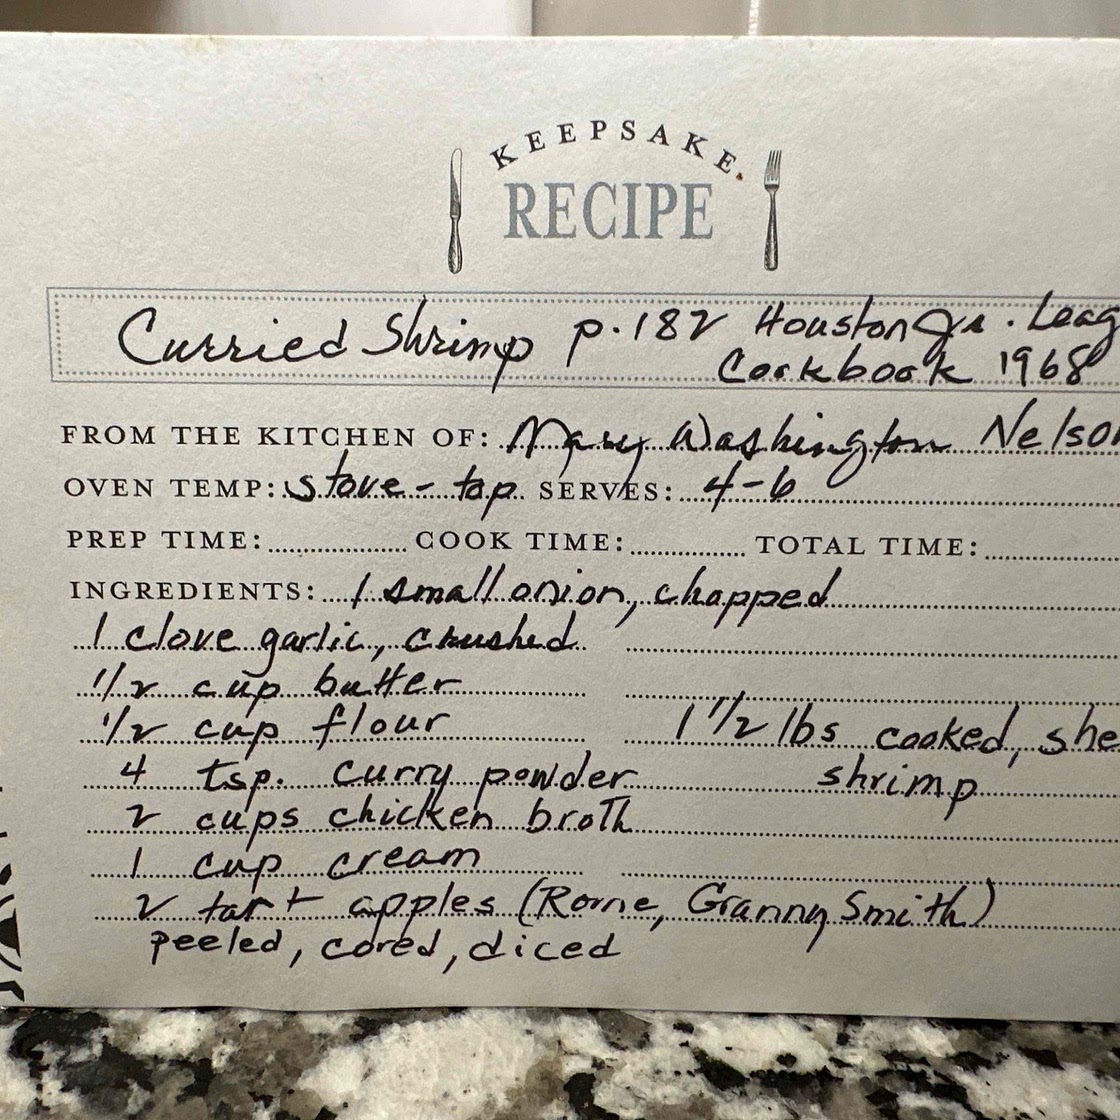 KEEPSAKE
RECIPE
Curried Shrimp p.182 Houston Jr. Leag
Cookbook 1968
FROM THE KITCHEN OF: Mary Washington Nelson
OVEN TEMP: stove-top SERVES: 4-6
PREP TIME: COOK TIME: TOTAL TIME:
INGREDIENTS: 1 small onion, chopped
1 clove garlic, crushed
1/2 cup butter
1/2 cup flour 1 1/2 lbs cooked, she
4 tsp. curry powder shrimp
2 cups chicken broth
1 cup cream
2 tart apples (Rome, Granny Smith)
peeled, cored, diced